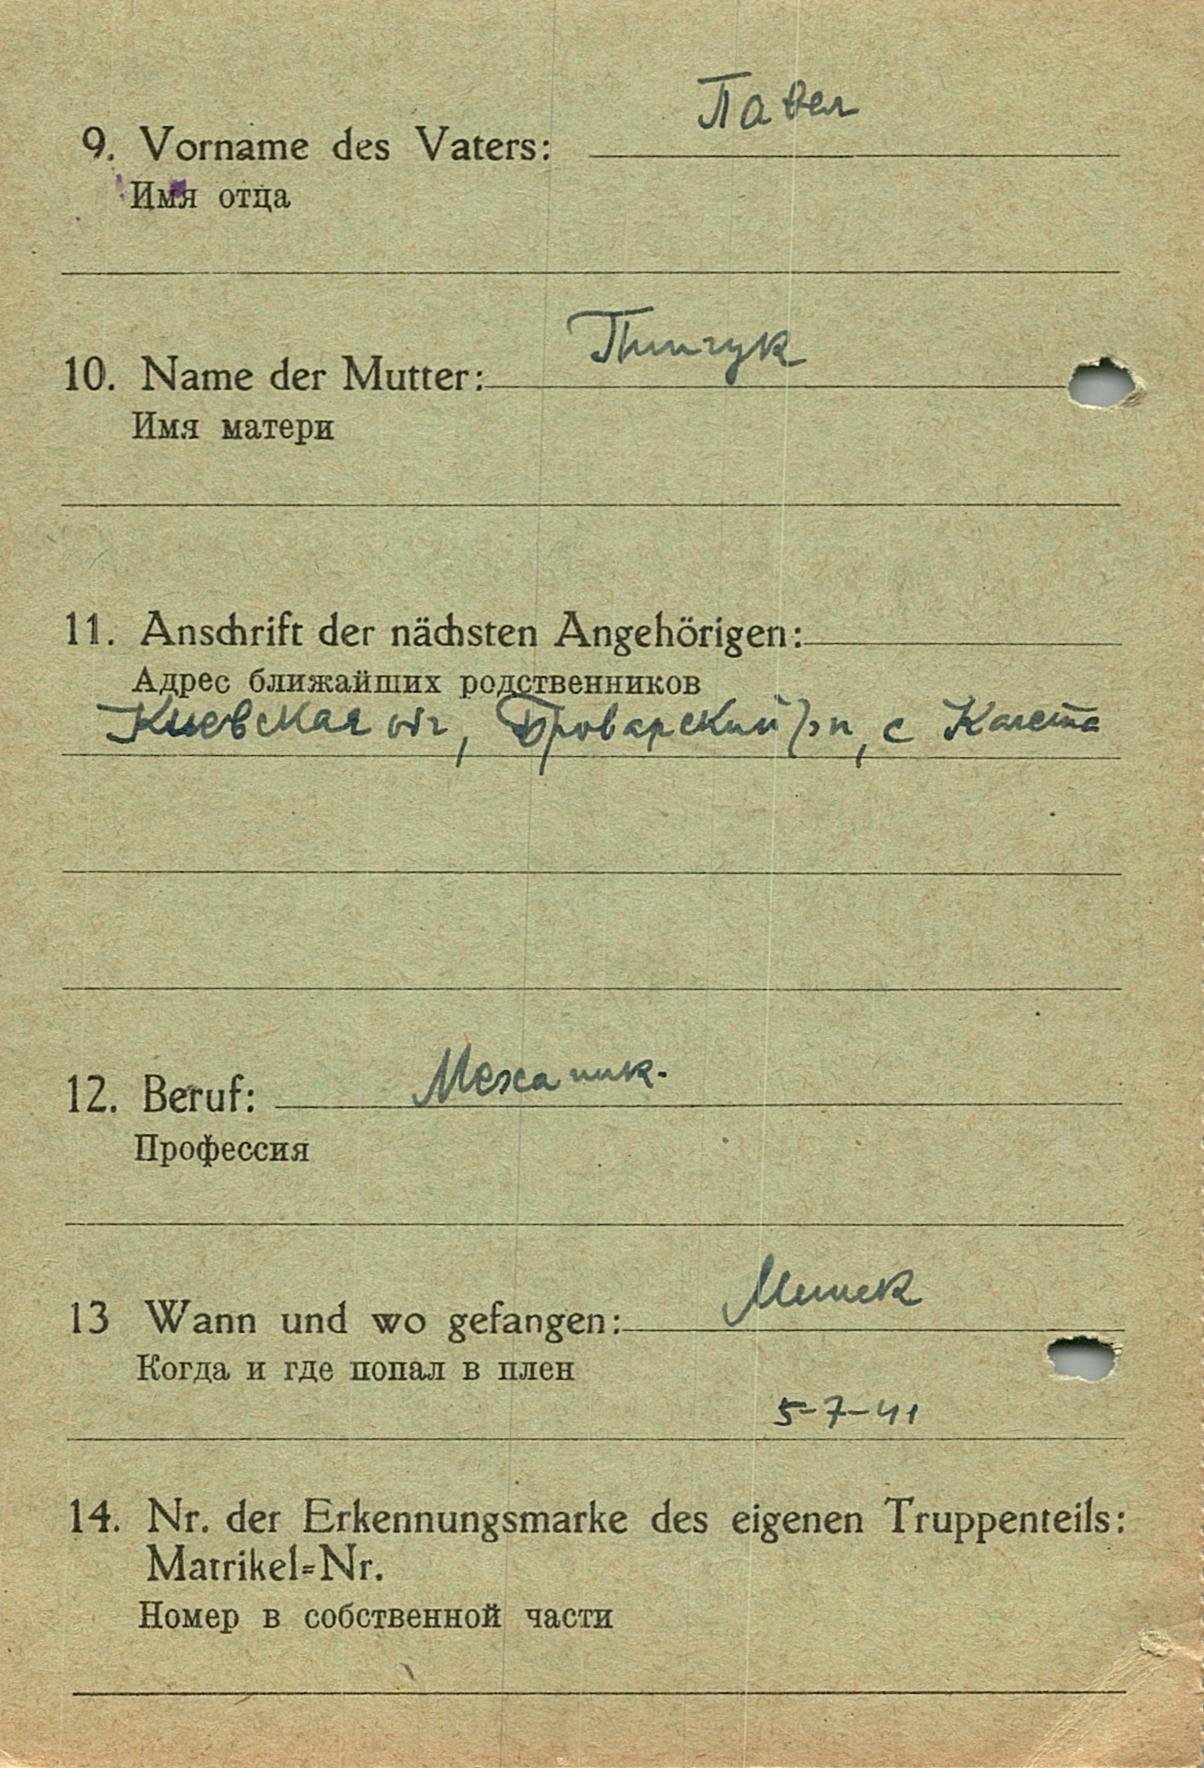 9. Vorname des Vaters: Павел
Имя отца
10. Name der Mutter: Пинчук
Имя матери
11. Anschrift der nächsten Angehörigen:
Адрес ближайших родственников
Киевская обл, Броварский р/н, с Калета
12. Beruf: Механик.
Профессия
13 Wann und wo gefangen: Минск
Когда и где попал в плен
5-7-41
14. Nr. der Erkennungsmarke des eigenen Truppenteils:
Matrikel=Nr.
Номер в собственной части